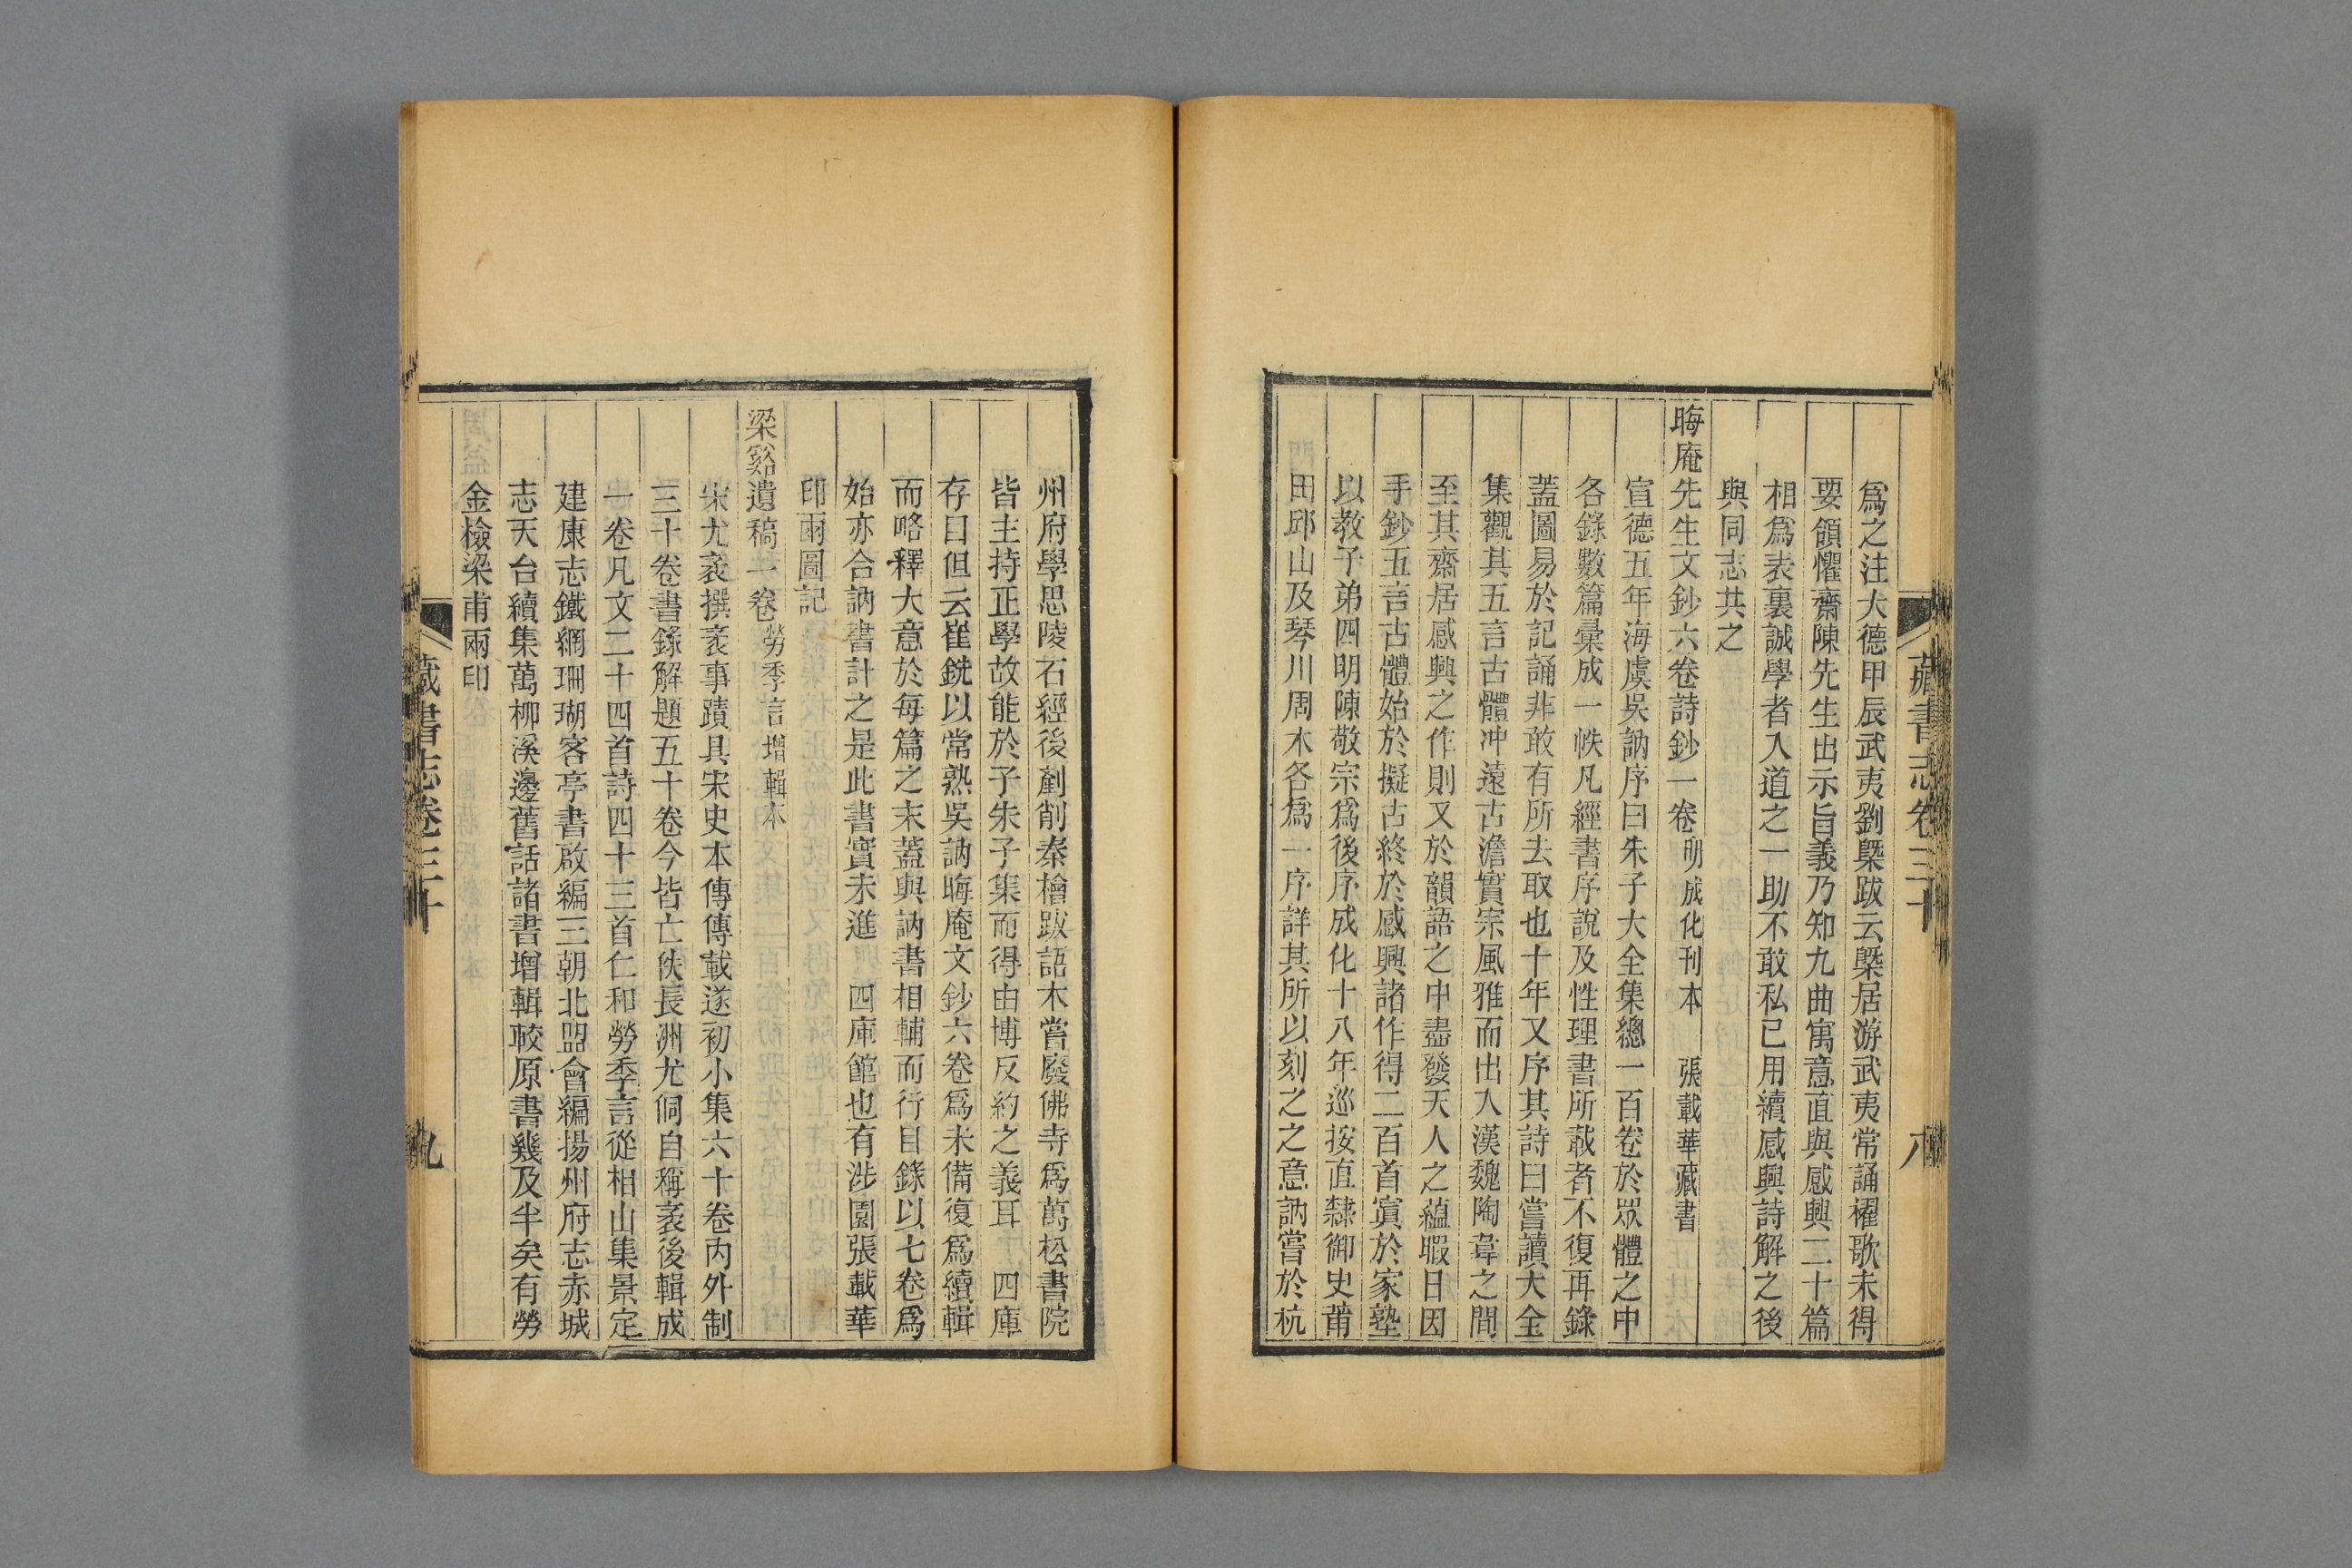 藏書志卷三十
八
爲之注大德甲辰武夷劉槩跋云槩居游武夷常誦櫂歌未得
要領懼齋陳先生出示旨義乃知九曲寓意直與感興二十篇
相爲表裏誠學者入道之一助不敢私已用續感興詩解之後
與同志共之
晦庵先生文鈔六卷詩鈔一卷明成化刊本 張載華藏書
宣德五年海虞吳訥序曰朱子大全集總一百卷於眾體之中
各錄數篇彙成一帙凡經書序說及性理書所載者不復再錄
蓋圖易於記誦非敢有所去取也十年又序其詩曰嘗讀大全
集觀其五言古體冲遠古澹實宗風雅而出入漢魏陶韋之間
至其齋居感興之作則又於韻語之中盡發天人之蘊暇日因
手鈔五言古體始於擬古終於感興諸作得二百首寘於家塾
以教子弟四明陳敬宗爲後序成化十八年巡按直隸御史莆
田邱山及琴川周木各爲一序詳其所以刻之之意訥嘗於杭
州府學思陵石經後剷削秦檜跋語木嘗廢佛寺爲萬松書院
皆主持正學故能於子朱子集而得由博反約之義耳 四庫
存目但云崔銑以常熟吳訥晦庵文鈔六卷爲未備復爲續輯
而略釋大意於每篇之末蓋與訥書相輔而行目錄以七卷爲
始亦合訥書計之是此書實未進 四庫館也有涉園張載華
印兩圖記
梁谿遺稿一卷勞季言增輯本
宋尤袤撰袤事蹟具宋史本傳傳載遂初小集六十卷內外制
三十卷書錄解題五十卷今皆亡佚長洲尤侗自稱袤後輯成
一卷凡文二十四首詩四十三首仁和勞季言從相山集景定
建康志鐵網珊瑚客亭書啟編三朝北盟會編揚州府志赤城
志天台續集萬柳溪邊舊話諸書增輯較原書幾及半矣有勞
金檢梁甫兩印
藏書志卷三十
九